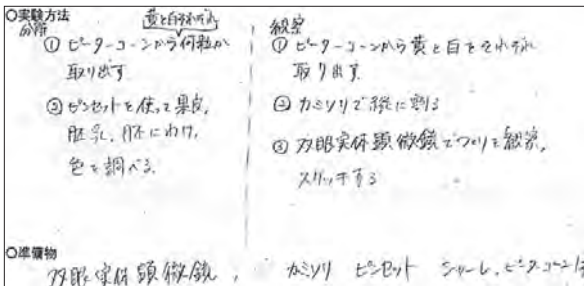 ○実験方法
分解
黄と白それぞれ
①ピーターコーンから何粒か
取り出す
②ピンセットを使って果皮、
胚乳、胚にわけ、
色を調べる。
観察
①ピーターコーンから黄と白をそれぞれ
取り出す
②カミソリで縦に割る
③双眼実体顕微鏡でつくりを観察、
スケッチする
○準備物
双眼実体顕微鏡、カミソリ ピンセット シャーレ、ピーターコーン